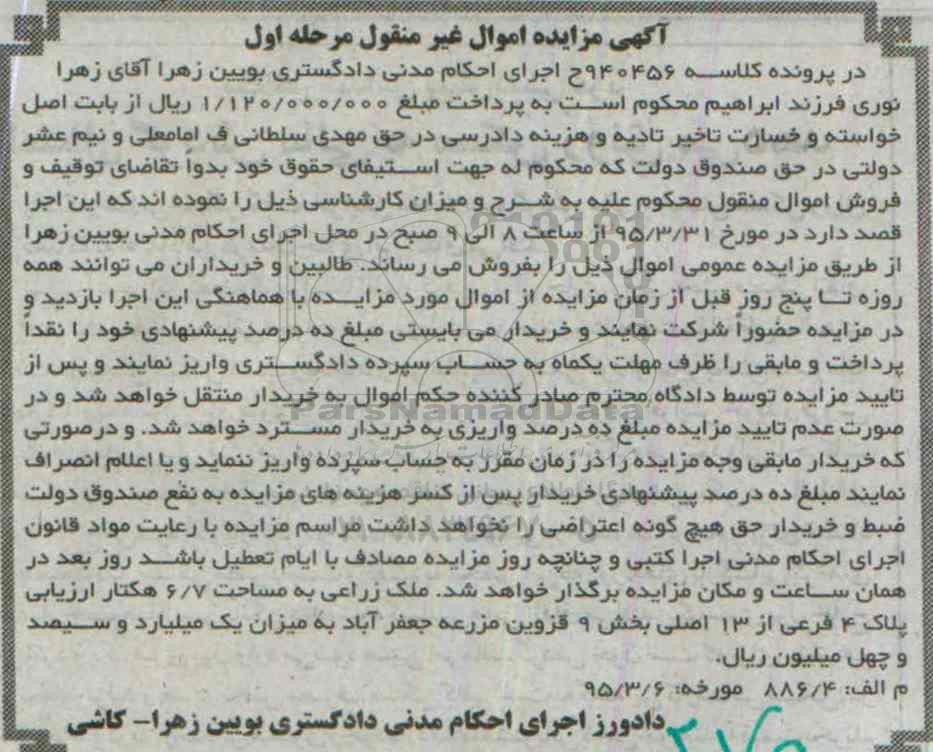 آگهی مزایده اموال غیر منقول مرحله اول
در پرونده کلاسه ۹۴۰۴۵۶ح اجرای احکام مدنی دادگستری بویین زهرا آقای زهرا
نوری فرزند ابراهیم محکوم است به پرداخت مبلغ ۱/۱۲۰/۰۰۰/۰۰۰ ریال از بابت اصل
خواسته و خسارت تاخیر تادیه و هزینه دادرسی در حق مهدی سلطانی ف امامعلی و نیم عشر
دولتی در حق صندوق دولت که محکوم له جهت استیفای حقوق خود بدواً تقاضای توقیف و
فروش اموال منقول محکوم علیه به شرح و میزان کارشناسی ذیل را نموده اند که این اجرا
قصد دارد در مورخ ۹۵/۳/۳۱ از ساعت ۸ الی ۹ صبح در محل اجرای احکام مدنی بویین زهرا
از طریق مزایده عمومی اموال ذیل را بفروش می رساند. طالبین و خریداران می توانند همه
روزه تا پنج روز قبل از زمان مزایده از اموال مورد مزایده با هماهنگی این اجرا بازدید و
در مزایده حضوراً شرکت نمایند و خریدار می بایستی مبلغ ده درصد پیشنهادی خود را نقداً
پرداخت و مابقی را ظرف مهلت یکماه به حساب سپرده دادگستری واریز نمایند و پس از
تایید مزایده توسط دادگاه محترم صادر کننده حکم اموال به خریدار منتقل خواهد شد و در
صورت عدم تایید مزایده مبلغ ده درصد واریزی به خریدار مسترد خواهد شد. و درصورتی
که خریدار مابقی وجه مزایده را در زمان مقرر به حساب سپرده واریز ننماید و یا اعلام انصراف
نمایند مبلغ ده درصد پیشنهادی خریدار پس از کسر هزینه های مزایده به نفع صندوق دولت
ضبط و خریدار حق هیچ گونه اعتراضی را نخواهد داشت مراسم مزایده با رعایت مواد قانون
اجرای احکام مدنی اجرا کتبی و چنانچه روز مزایده مصادف با ایام تعطیل باشد روز بعد در
همان ساعت و مکان مزایده برگذار خواهد شد. ملک زراعی به مساحت ۶/۷ هکتار ارزیابی
پلاک ۴ فرعی از ۱۳ اصلی بخش ۹ قزوین مزرعه جعفر آباد به میزان یک میلیارد و سیصد
و چهل میلیون ریال.
م الف: ۸۸۶/۴ مورخه: ۹۵/۳/۶
دادورز اجرای احکام مدنی دادگستری بویین زهرا- کاشی
ParsNamadData